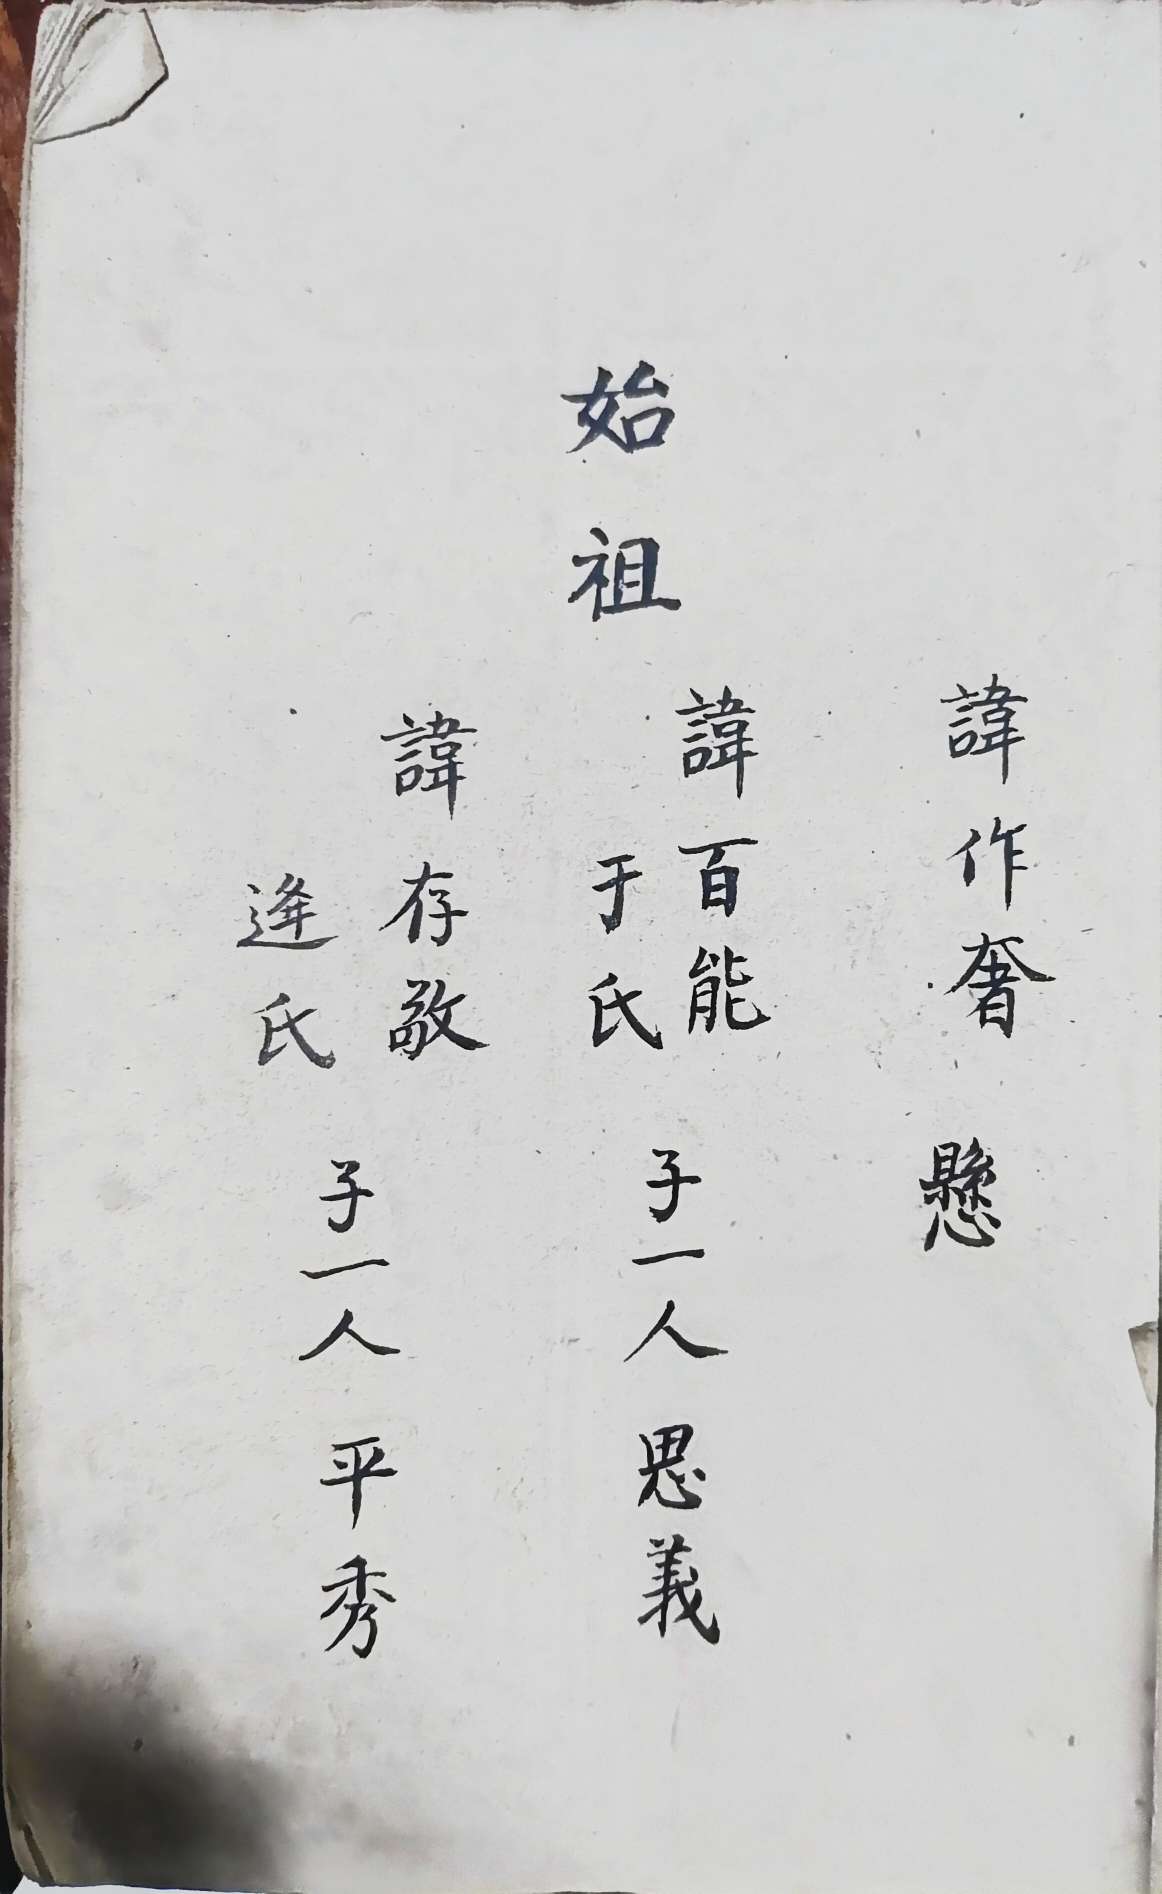 始祖
諱作奢 懸
諱百能
于氏
子一人 思義
諱存敬
逄氏
子一人 平秀